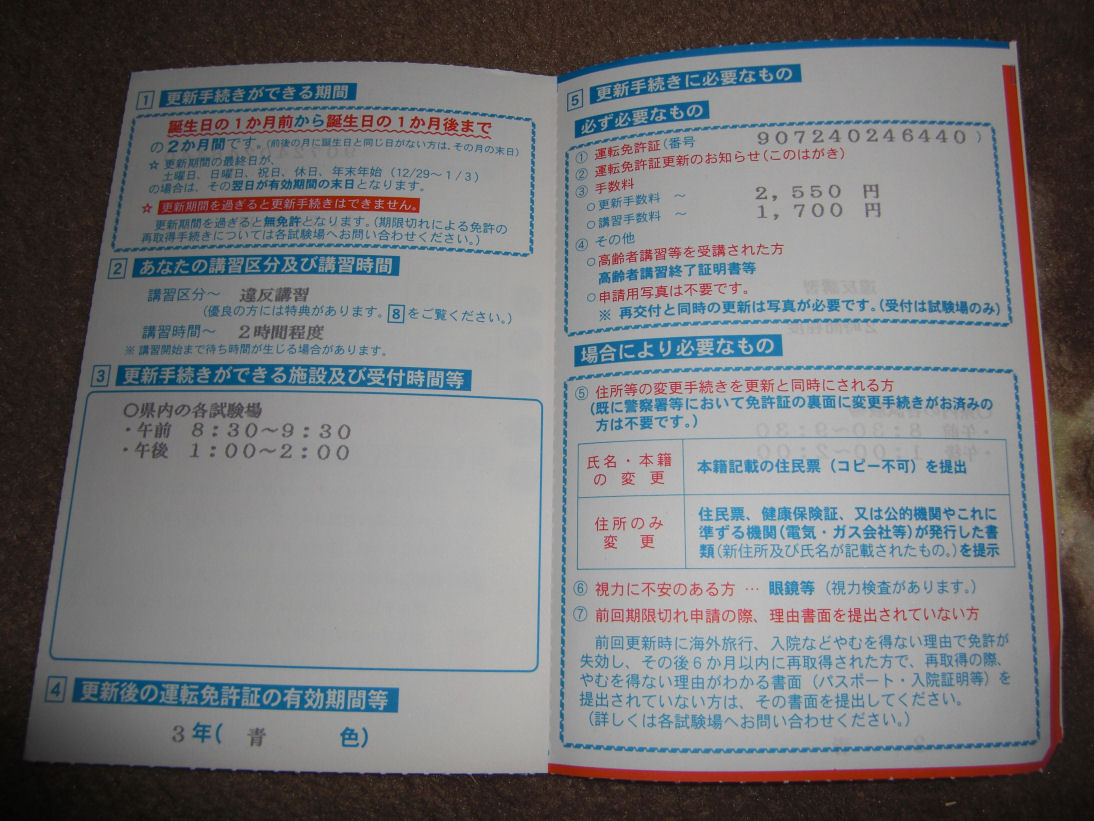 1 更新手続きができる期間
誕生日の1か月前から誕生日の1か月後まで
の2か月間です。(前後の月に誕生日と同じ日がない方は、その月の末日)
☆ 更新期間の最終日が、
土曜日、日曜日、祝日、休日、年末年始(12/29~1/3)
の場合は、その翌日が有効期間の末日となります。
☆ 更新期間を過ぎると更新手続きはできません。
更新期間を過ぎると無免許となります。(期限切れによる免許の
再取得手続きについては各試験場へお問い合わせください。)
2 あなたの講習区分及び講習時間
講習区分~ 違反講習
(優良の方には特典があります。8をご覧ください。)
講習時間~ 2時間程度
※ 講習開始まで待ち時間が生じる場合があります。
3 更新手続きができる施設及び受付時間等
○県内の各試験場
・午前 8:30~9:30
・午後 1:00~2:00
4 更新後の運転免許証の有効期間等
3年(青 色)
5 更新手続きに必要なもの
必ず必要なもの
① 運転免許証(番号 907240246440)
② 運転免許証更新のお知らせ(このはがき)
③ 手数料
○更新手数料 ~ 2,550 円
○講習手数料 ~ 1,700 円
④ その他
○高齢者講習等を受講された方
高齢者講習終了証明書等
○申請用写真は不要です。
※ 再交付と同時の更新は写真が必要です。(受付は試験場のみ)
場合により必要なもの
⑤ 住所等の変更手続きを更新と同時にされる方
(既に警察署等において免許証の裏面に変更手続きがお済みの
方は不要です。)
氏名・本籍
の変更
本籍記載の住民票(コピー不可)を提出
住所のみ
変更
住民票、健康保険証、又は公的機関やこれに
準ずる機関(電気・ガス会社等)が発行した書
類(新住所及び氏名が記載されたもの。)を提示
⑥ 視力に不安のある方 … 眼鏡等(視力検査があります。)
⑦ 前回期限切れ申請の際、理由書面を提出されていない方
前回更新時に海外旅行、入院などやむを得ない理由で免許が
失効し、その後6か月以内に再取得された方で、再取得の際、
やむを得ない理由がわかる書面(パスポート・入院証明等)を
提出されていない方は、その書面を提出してください。
(詳しくは各試験場へお問い合わせください。)